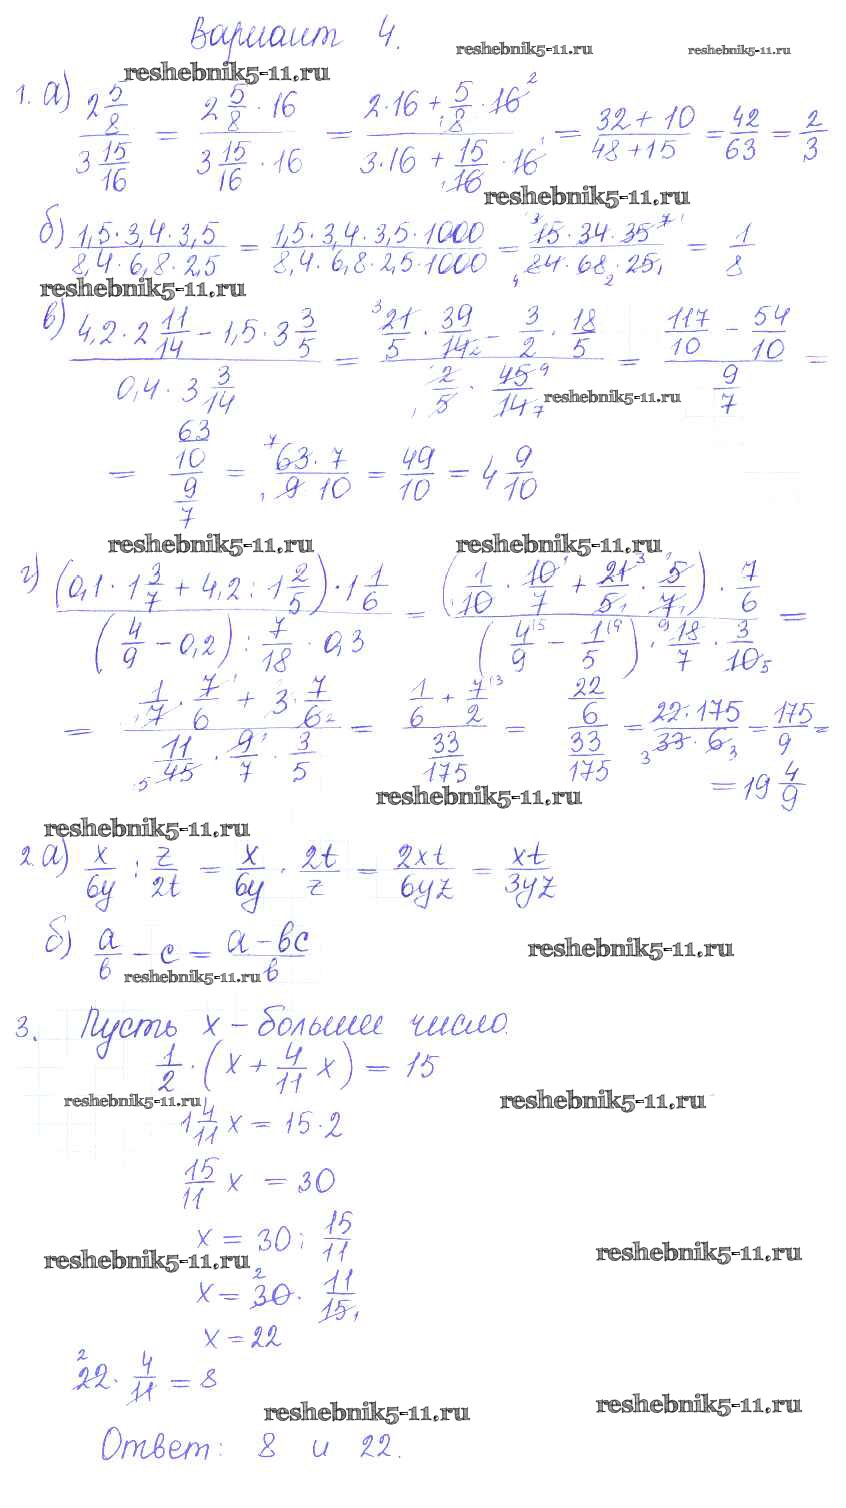 Вариант 4.
reshebnik5-11.ru reshebnik5-11.ru
reshebnik5-11.ru
1. а) (2 5/8)/(3 15/16) = (2 5/8 · 16)/(3 15/16 · 16) = (2·16 + 5/8 · 16)/(3·16 + 15/16 · 16) = (32 + 10)/(48 + 15) = 42/63 = 2/3
reshebnik5-11.ru
б) (1,5 · 3,4 · 3,5)/(8,4 · 6,8 · 2,5) = (1,5 · 3,4 · 3,5 · 1000)/(8,4 · 6,8 · 2,5 · 1000) = (15 · 34 · 35)/(84 · 68 · 25) = 1/8
reshebnik5-11.ru
в) (4,2 · 2 11/14 – 1,5 · 3 3/5)/(0,4 · 3 3/14) = (21/5 · 39/14 – 3/2 · 18/5)/(2/5 · 45/14) = (117/10 – 54/10)/(9/7) =
reshebnik5-11.ru
= (63/10)/(9/7) = (63 · 7)/(9 10) = 49/10 = 4 9/10
reshebnik5-11.ru reshebnik5-11.ru
г) ((0,1 · 1 3/7 + 4,2 : 1 2/5) · 1 1/6)/((4/9 – 0,2) : 7/18 · 0,3) = ((1/10 · 10/7 + 21/5 · 5/7) · 7/6)/((4/9 – 1/5) · 18/7 · 3/10) =
= (1/7 · 7/6 + 3 · 7/6)/(11/45 · 9/7 · 3/5) = (1/6 + 7/2)/(33/175) = (22/6)/(33/175) = (22 · 175)/(33 · 6) = 175/9 =
= 19 4/9
reshebnik5-11.ru
reshebnik5-11.ru
2. а) x/6y : z/2t = x/6y · 2t/z = 2xt/6yz = xt/3yz
б) a/в – c = (a – вc)/в
reshebnik5-11.ru
reshebnik5-11.ru
3. Пусть x – большее число.
1/2 · (x + 4/11 x) = 15
reshebnik5-11.ru reshebnik5-11.ru
1 4/11 x = 15 · 2
15/11 x = 30
x = 30 : 15/11
reshebnik5-11.ru reshebnik5-11.ru
x = 30 · 11/15
x = 22
22 · 4/11 = 8
reshebnik5-11.ru reshebnik5-11.ru
Ответ: 8 и 22.